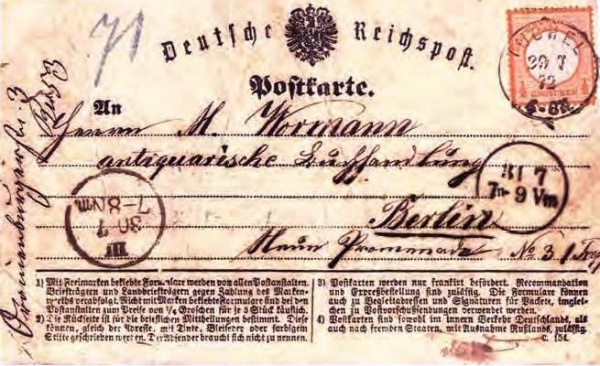 71
Deutsche Reichspost.
Postkarte.
An
Herrn M. Wormann
antiquarische Buchhandlung
Berlin
No 3 1
TUCHEL
29 7
72
31 7
7u-9 Vm
III
30
7
7-8 Nm
1) Mit Freimarken beklebte Formulare werden von allen Postanstalten,
Briefträgern und Landbriefträgern gegen Zahlung des Marken-
werths verabfolgt. Nicht mit Marken beklebte Formulare sind bei den
Postanstalten zum Preise von ¼ Groschen für je 5 Stück käuflich.
2) Die Rückseite ist für die brieflichen Mittheilungen bestimmt. Diese
können, gleich der Adresse, mit Tinte, Bleifeder oder farbigem
Stifte geschrieben werden. Der Absender braucht sich nicht zu nennen.
3) Postkarten werden nur frankirt befördert. Recommandation
und Expreßbestellung sind zulässig. Die Formulare können
auch zu Begleitadressen und Signaturen für Packete, imgleichen
zu Postvorschußsendungen verwendet werden.
4) Postkarten sind sowohl im innern Verkehr Deutschlands, als
auch nach fremden Staaten, mit Ausnahme Rußlands, zulässig.
C. 154.